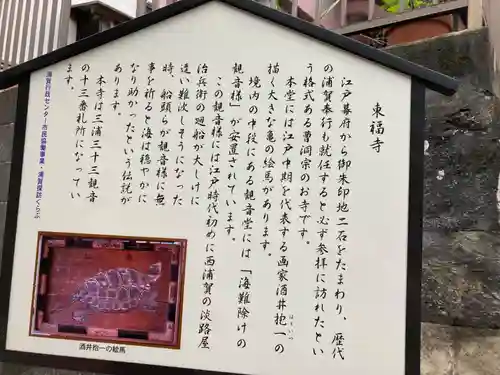 東福寺
江戸幕府から御朱印地二石をたまわり、歴代
の浦賀奉行も就任すると必ず参拝に訪れたとい
う格式ある曹洞宗のお寺です。
本堂には江戸中期を代表する画家酒井抱一の
ほういつ
描く大きな亀の絵馬があります。
境内の中段にある観音堂には「海難除けの
観音様」が安置されています。
この観音様には江戸時代初めに西浦賀の淡路屋
治兵衛の廻船が大しけに
遭い難渋しそうになった
時、船頭らが観音様に無
事を祈ると海は穏やかに
なり助かったという伝説が
あります。
本寺は三浦三十三観音
の十三番札所になってい
ます。
浦賀行政センター市民協働事業・浦賀探訪くらぶ
酒井抱一の絵馬